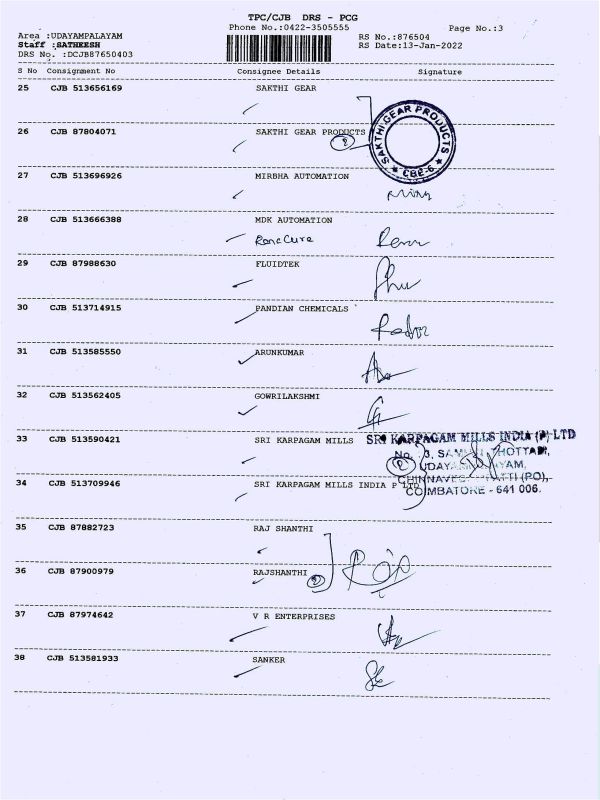 TPC/CJB DRS - PCG
Phone No.:0422-3505555
Page No.:3
Area :UDAYAMPALAYAM
RS No.:876504
Staff :SATHEESH
RS Date:13-Jan-2022
DRS No. :DCJB87650403
S No Consignment No Consignee Details Signature
25 CJB 513656169 SAKTHI GEAR
26 CJB 87804071 SAKTHI GEAR PRODUCTS
2
SAKTHI GEAR PRODUCTS
★ CBE-6 ★
27 CJB 513696926 MIRBHA AUTOMATION
28 CJB 513666388 MDK AUTOMATION
RoneCure
29 CJB 87988630 FLUIDTEK
30 CJB 513714915 PANDIAN CHEMICALS
31 CJB 513585550 ARUNKUMAR
32 CJB 513562405 GOWRILAKSHMI
33 CJB 513590421 SRI KARPAGAM MILLS
SRI KARPAGAM MILLS INDIA (P) LTD
No. 3, THOTTAM,
COIMBATORE - 641 006.
34 CJB 513709946 SRI KARPAGAM MILLS INDIA P LTD
35 CJB 87882723 RAJ SHANTHI
36 CJB 87900979 RAJSHANTHI
2
37 CJB 87974642 V R ENTERPRISES
38 CJB 513581933 SANKER